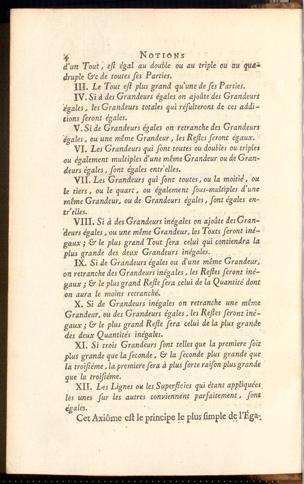 4 NOTIONS
d'un Tout, est égal au double ou au triple ou au qua-
druple &c de toutes ses Parties.
III. Le Tout est plus grand qu'une de ses Parties.
IV. Si à des Grandeurs égales on ajoûte des Grandeurs
égales, les Grandeurs totales qui résulteront de ces addi-
tions seront égales.
V. Si de Grandeurs égales on retranche des Grandeurs
égales, ou une même Grandeur, les Restes seront égaux.
VI. Les Grandeurs qui sont toutes ou doubles ou triples
ou également multiples d'une même Grandeur ou de Gran-
deurs égales, sont égales entr'elles.
VII. Les Grandeurs qui sont toutes, ou la moitié, ou
le tiers, ou le quart, ou également sous-multiples d'une
même Grandeur, ou de Grandeurs égales, sont égales en-
tr'elles.
VIII. Si à des Grandeurs inégales on ajoûte des Gran-
deurs égales, ou une même Grandeur, les Touts seront iné-
gaux; & le plus grand Tout sera celui qui contiendra la
plus grande des deux Grandeurs inégales.
IX. Si de Grandeurs égales ou d'une même Grandeur,
on retranche des Grandeurs inégales, les Restes seront iné-
gaux; & le plus grand Reste sera celui de la Quantité dont
on aura le moins retranché.
X. Si de Grandeurs inégales on retranche une même
Grandeur, ou des Grandeurs égales, les Restes seront iné-
gaux; & le plus grand Reste sera celui de la plus grande
des deux Quantités inégales.
XI. Si trois Grandeurs sont telles que la premiere soit
plus grande que la seconde, & la seconde plus grande que
la troisiéme, la premiere sera à plus forte raison plus grande
que la troisiéme.
XII. Les Lignes ou les Superficies qui étant appliquées
les unes sur les autres conviennent parfaitement, sont
égales.
Cet Axiôme est le principe le plus simple de l'Éga-